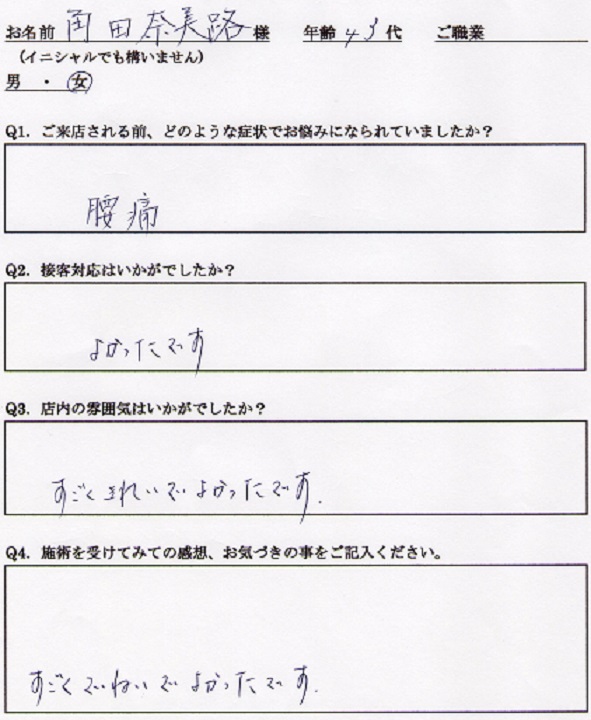 お名前 角田奈美路 様 年齢 43 代 ご職業
(イニシャルでも構いません)
男 ・ 女
Q1. ご来店される前、どのような症状でお悩みになられていましたか？
腰痛
Q2. 接客対応はいかがでしたか？
よかったです
Q3. 店内の雰囲気はいかがでしたか？
すごくきれいでよかったです.
Q4. 施術を受けてみての感想、お気づきの事をご記入ください。
すごくていねいでよかったです.